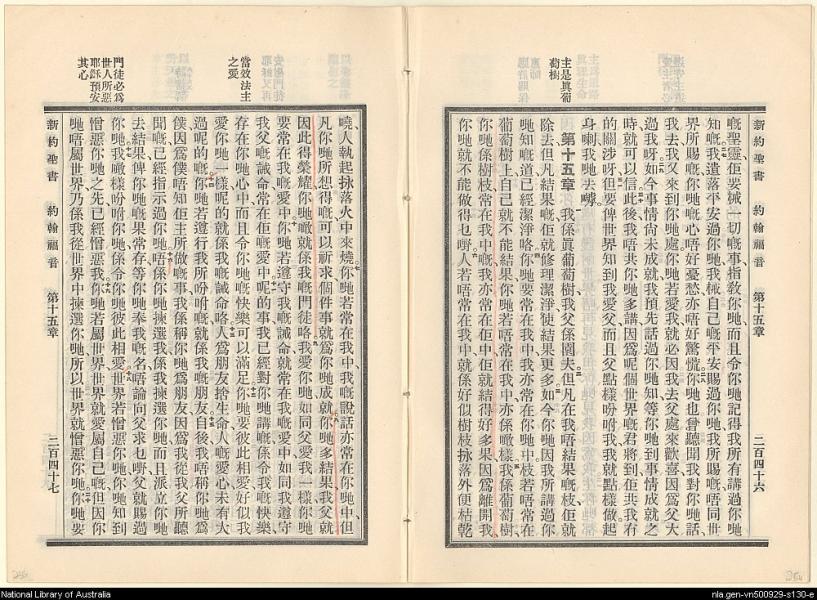 新約聖書 約翰福音 第十五章 二百四十六
嘅聖靈佢要械一切嘅事指敎你哋而且令你哋記得我所有講過你哋
知嘅我遺落平安過你哋我械自己嘅平安賜過你哋我所賜嘅唔同世
界所賜嘅你哋嘅心唔好憂愁亦唔好驚慌你哋也曾聽聞我對你哋話
我去我又來到你哋處你哋若愛我就必因我去父處來歡喜因爲父大
過我呀如今事情尙未成就我預先話過你哋知等你哋到事情成就之
時就可以信此後我唔共你哋多講因爲呢個世界嘅君將到佢共我有
的關涉呀但要俾世界知到我愛父而且父點樣吩咐我我就點樣做起
身喇我哋去嘑
主是真葡
萄樹
第十五章 我係眞葡萄樹我父係園夫但凡在我唔結果嘅枝佢就
除去但凡結果嘅佢就修理潔淨使結果更多如今你哋因我所講過你
哋知嘅道已經潔淨咯你哋要常在我中我亦常在你哋中枝若唔常在
葡萄樹上自己就不能結果你哋若唔常在我中亦係噉樣我係葡萄樹
你哋係樹枝常在我中嘅我亦常在佢中佢就結得好多果因爲離開我
你哋就不能做得乜嘢人若唔常在我中就係好似樹枝掷落外便枯乾
嘵人執起掷落火中來燒你哋若常在我中我嘅說話亦常在你哋中但
凡你哋所想得嘅可以祈求個件事就爲你哋成就你哋多結果我父就
因此得榮耀你哋噉就係我嘅門徒咯我愛你哋如同父愛我一樣你哋
要常在我嘅愛中你哋若遵守我嘅誡命就常在我嘅愛中如同我遵守
我父嘅誡命常在佢嘅愛中呢的事我已經對你哋講嘅係令我嘅快樂
當效法主
之愛
存在你哋心中而且令你哋嘅快樂可以滿足你哋要彼此相愛好似我
愛你哋一樣呢的就係我嘅誡命咯人爲朋友捨生命人嘅愛心未有大
過呢的嘅你哋若遵行我所吩咐嘅就係我嘅朋友自後我唔稱你哋爲
僕因爲僕唔知佢主所做嘅事我係稱你哋爲朋友因爲我從我父所聽
聞嘅已經指示過你哋唔係你哋揀選我係我揀選你哋而且派立你哋
去結果俾你哋嘅果常存等你哋奉我嘅名唔論向父求乜嘢父就賜過
你哋我噉樣吩咐你哋係令你哋彼此相愛世界若憎惡你哋你哋知到
門徒必爲
世人所惡
耶穌預安
其心
憎惡你哋之先已經憎惡我你哋若屬世界世界就愛屬自己嘅但因你
哋唔屬世界乃係我從世界中揀選你哋所以世界就憎惡你哋你哋要
新約聖書 約翰福音 第十五章 二百四十七
National Library of Australia
nla.gen-vn500929-s130-e